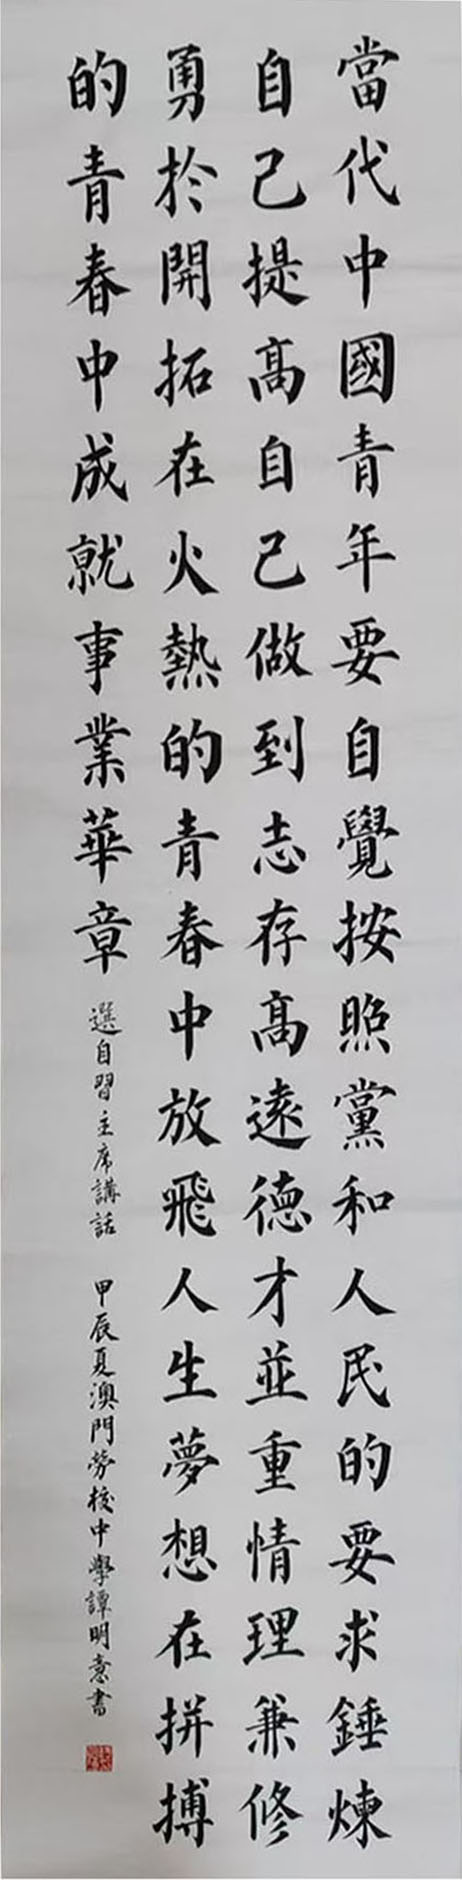 當代中國青年要自覺按照黨和人民的要求錘煉
自己提高自己做到志存高遠德才並重情理兼修
勇於開拓在火熱的青春中放飛人生夢想在拼搏
的青春中成就事業華章
選自習主席講話 甲辰夏澳門勞校中學譚明意書